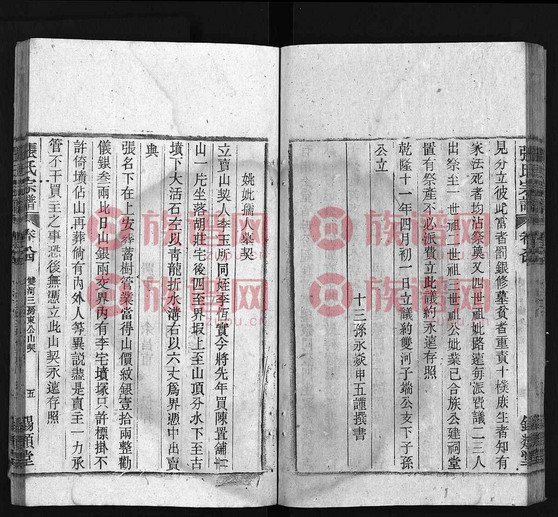 見分立彼此當者罰銀修墓貧者重責十様庶生者知有
家法死者均沾祭奠又四世祖妣路遠每派貲議二三人
出祭至一世祖二世祖三世祖公妣業已合族公建祠堂
置有祭產不必派費立此議約永遠存照
乾隆十一年四月初一日立議約雙河子端公支下子孫
公立
十三孫永嶽申五謹撰書
姚妣孺人墓契
立賣山契人李玉所同姪李恆實今將先年買陳置鋪
山一片坐落胡莊宅後四至界塅上至山頂分水下至古
墳下大活石至以青龍折水溝右以六丈爲界憑中出賣
與
張名下在上安葬蓄樹管業當得山價紋銀壹拾兩整勸
儀銀叁兩此日山銀兩交界內有李宅墳塚只許標掛不
許倚墳佔山再葬倘有內外人等異說盡是賣主一力承
管不干買主之事恐後無憑立此山契永遠存照
張氏宗譜
卷首
雙河三房東公山契
五
錫類堂